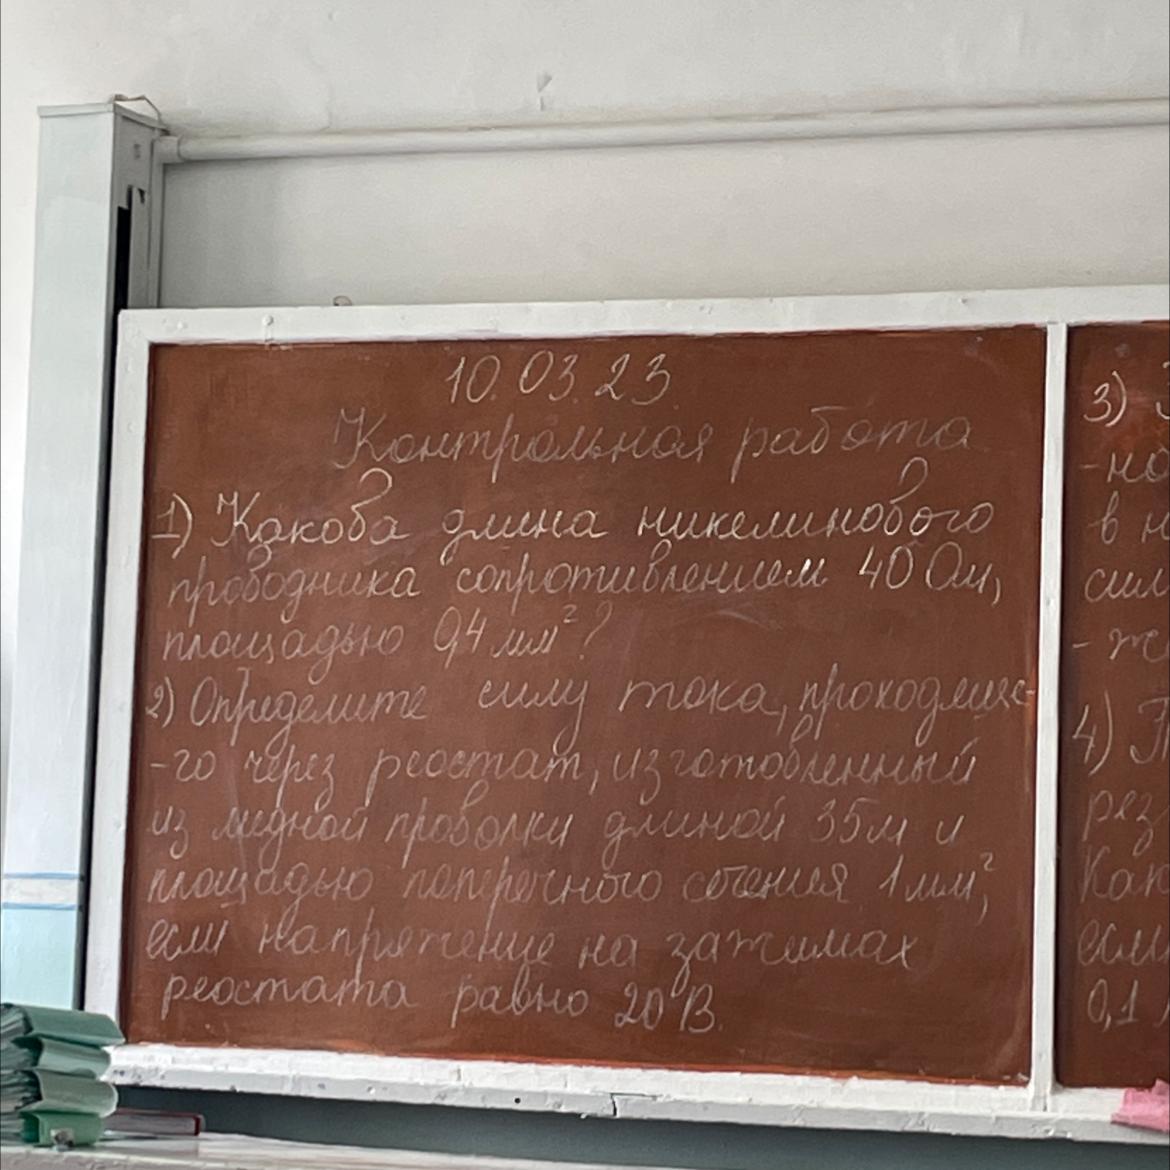 10.03.23.
Контрольная работа
1) Какова длина никелинового
проводника сопротивлением 40 Ом,
площадью 0,4 мм²?
2) Определите силу тока, проходяще-
-го через реостат, изготовленный
из медной проволки длиной 35м и
площадью поперечного сечения 1мм²,
если напряжение на зажимах
реостата равно 20В.
3)
-но
в н
сил
- же
4) П
рез
Как
если
0,1